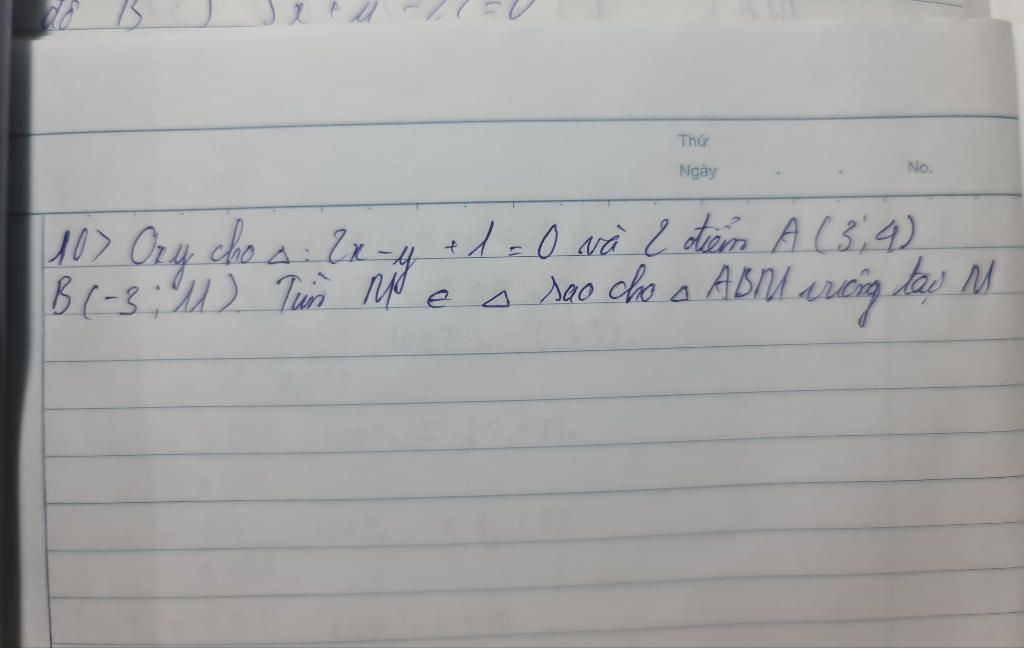 độ B
Thứ
Ngày . . No.
10> Oxy cho Δ: 2x - y + 1 = 0 và 2 điểm A (3;4)
B(-3; 11). Tìm M ∈ Δ sao cho Δ ABM vuông tại M